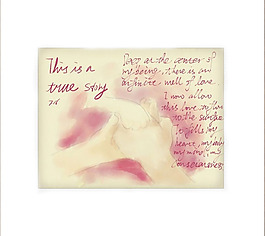 This is a
true Story
Deep at the center of
my being, there is an
infinite well of love
I now allow
this love to flow
to the surface
It fills my
heart, my body
my mind, my
consciousness